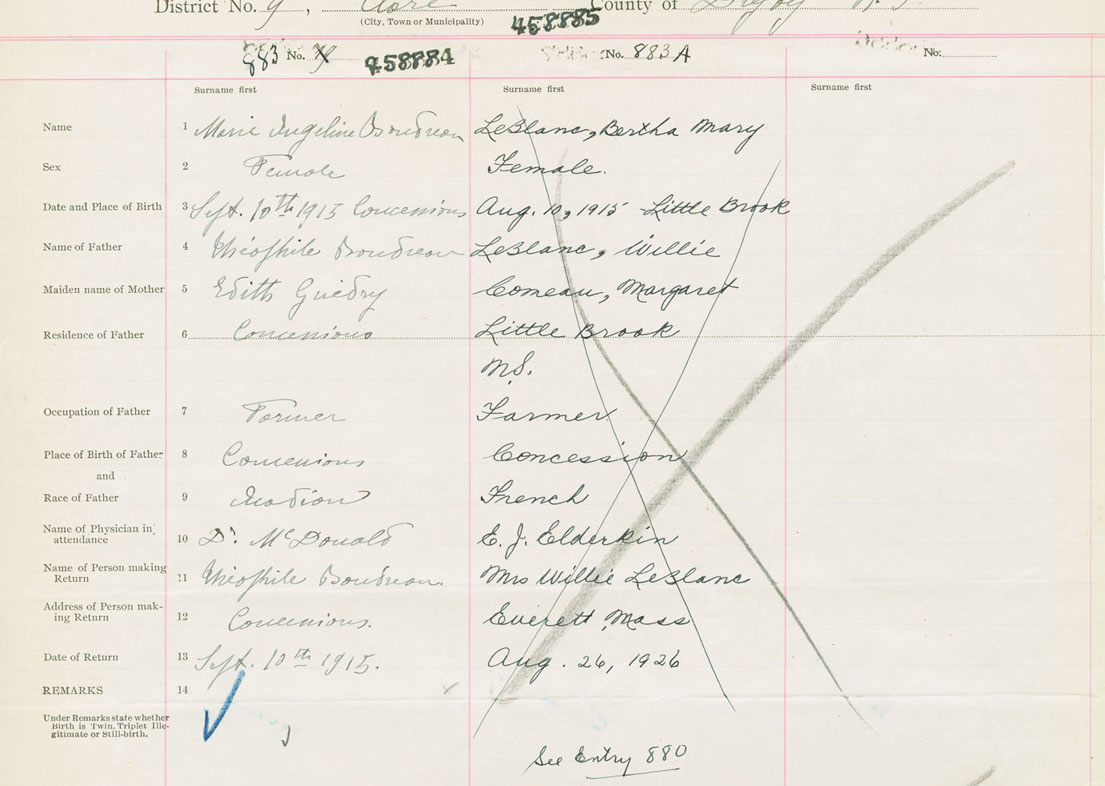 District No. 9, Clare County of Digby N.S.
(City, Town or Municipality)
458885
883 No. 458884 No. 883A No.
Surname first Surname first Surname first
Name 1 Marie Angeline Boudreau LeBlanc, Bertha Mary
Sex 2 Female Female.
Date and Place of Birth 3 Sept. 10th 1915 Concessions Aug. 10, 1915 Little Brook
Name of Father 4 Théophile Boudreau LeBlanc, Willie
Maiden name of Mother 5 Edith Guedry Comeau, Margaret
Residence of Father 6 Concessions Little Brook
N.S.
Occupation of Father 7 Farmer Farmer
Place of Birth of Father 8 Concessions Concession
and
Race of Father 9 French
Name of Physician in
attendance 10 Dr. McDonald E. J. Elderkin
Name of Person making
Return 11 Théophile Boudreau. Mrs Willie LeBlanc
Address of Person mak-
ing Return 12 Concessions. Everett, Mass
Date of Return 13 Sept. 10th 1915. Aug. 26, 1926
REMARKS 14
Under Remarks state whether
Birth is Twin, Triplet Ille-
gitimate or Still-birth.
See Entry 880